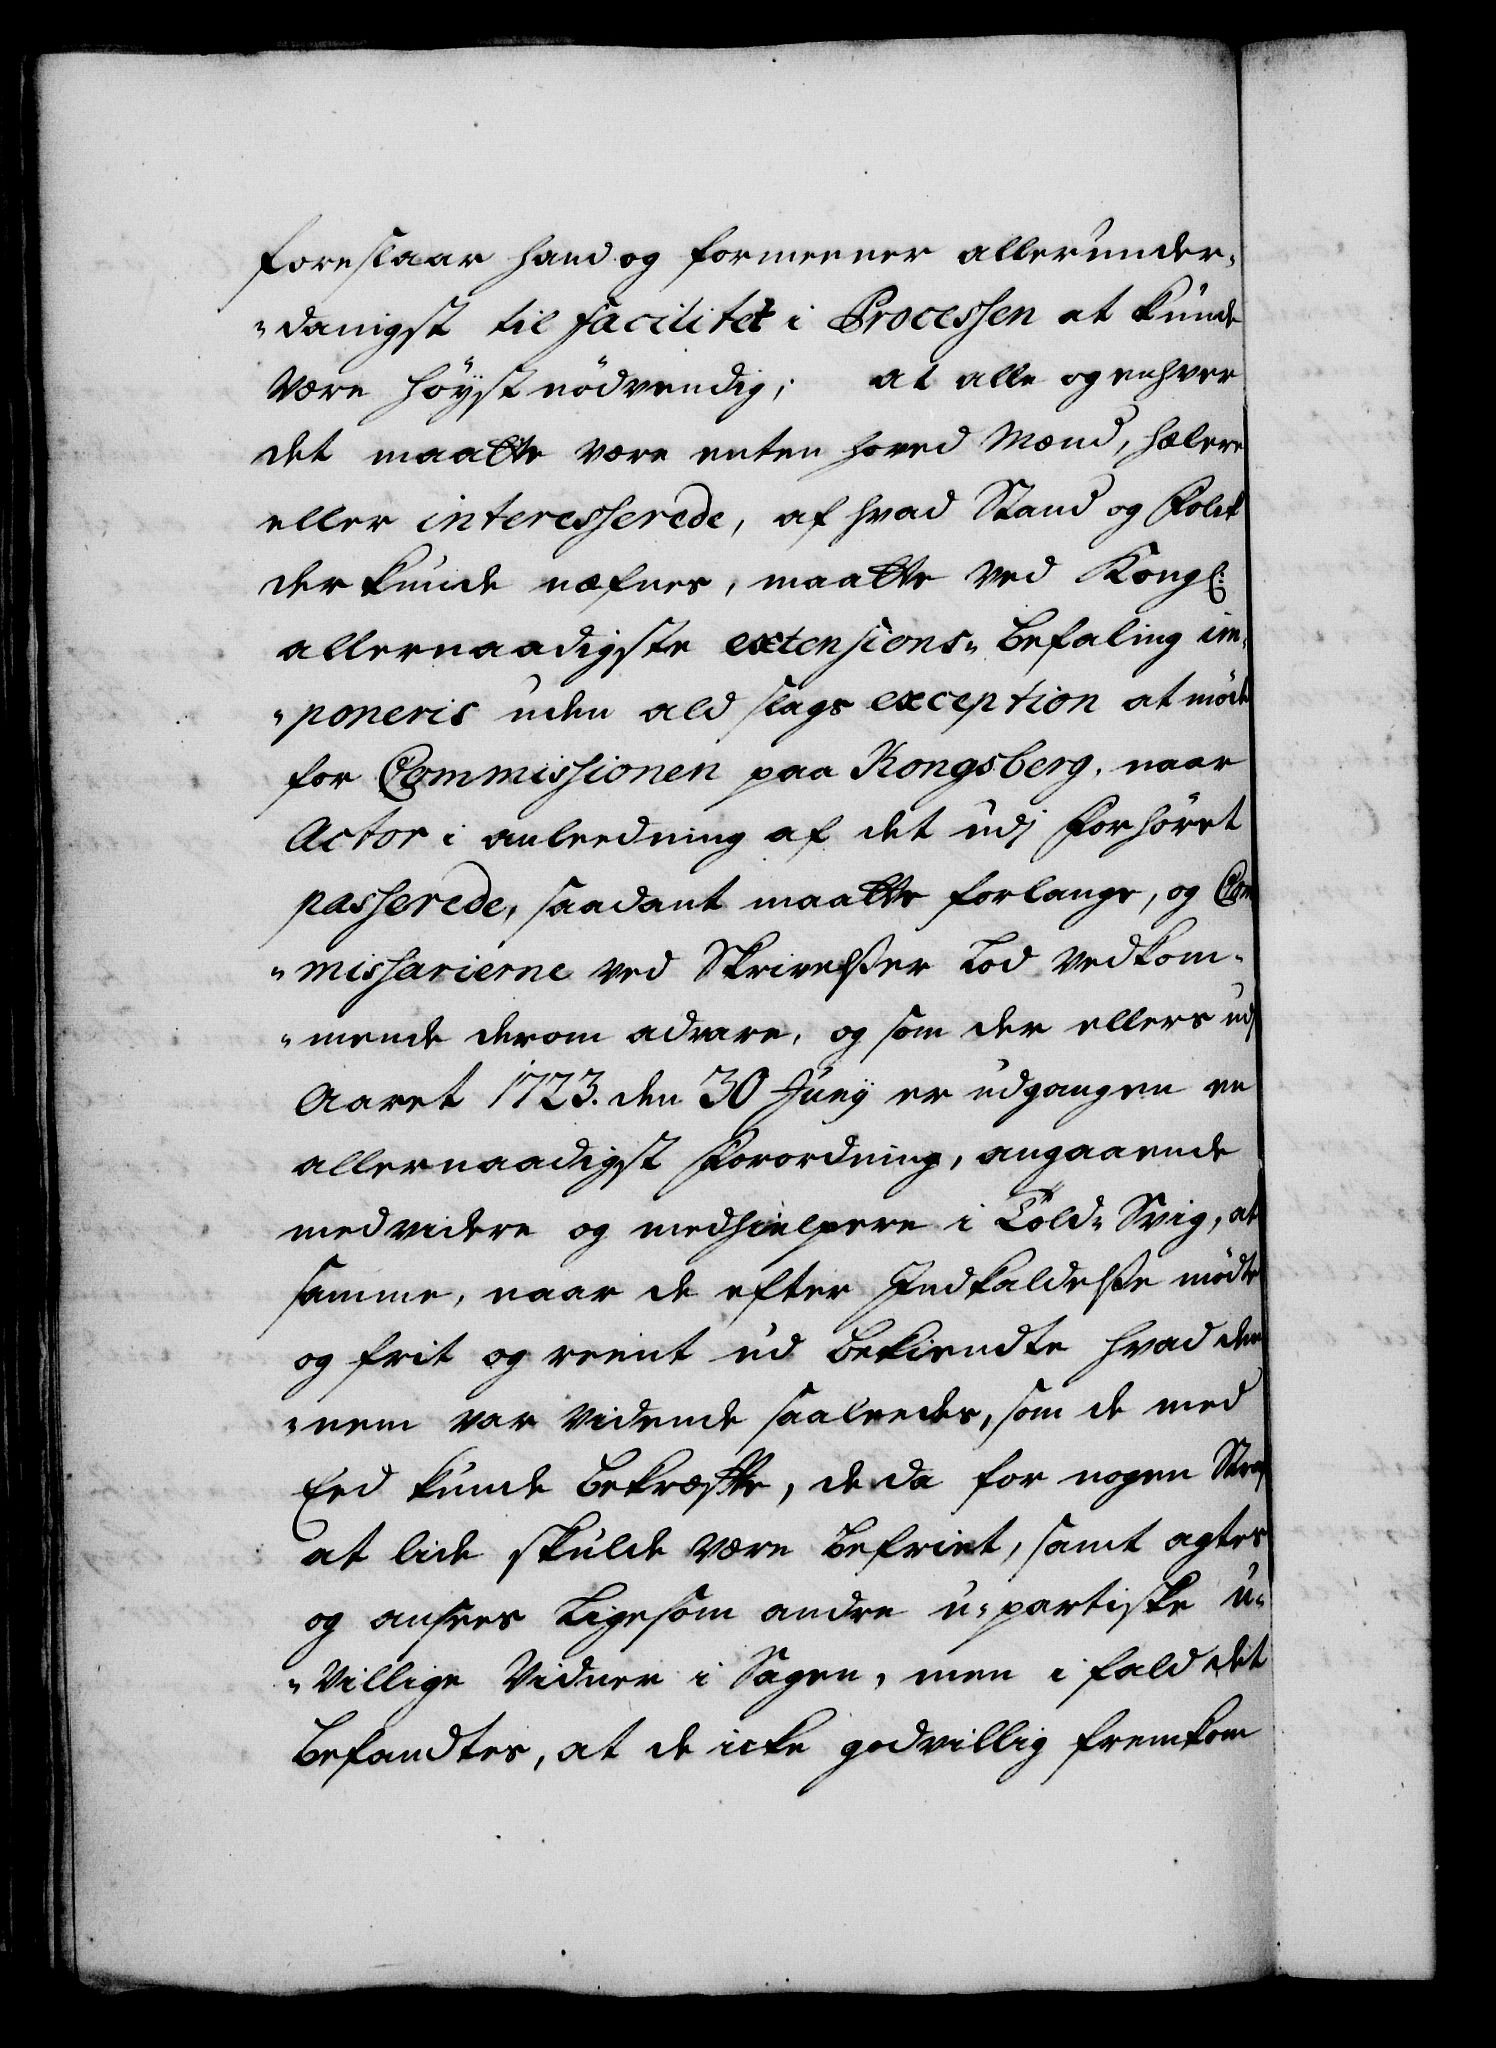 foreslaar hand og formeener allerunder-
-danigst til facilitet i Processen at kunde
være höyst nödvendig; at alle og enhver
det maatte være enten hoved Mænd, hælere
eller interesserede, af hvad Stand og Folck
der kunde næfnes, maatte ved Kongl:
allernaadigste extensions- Befaling im-
-poneris uden ald slags exception at möde
for Commissionen paa Kongsberg, naar
Actor i anleedning af det udj Forhöret
passerede, saadant maatte forlange, og Com
-missarierne ved Skrivelser lod vedkom-
-mende derom advare, og som der ellers udj
Aaret 1723. den 30 Junij er udgangen en
allernaadigst Forordning, angaaende
medvidere og medhielpere i Told- Svig, at
samme, naar de efter Indkaldelse mödte
og frit og reent ud bekiendte hvad den
-nem var vidende saaleedes, som de med
Eed kunde bekræfte, de da for nogen Straf
at lide skulde være befriet, samt agtes
og ansees ligesom andre u-partiske u-
-villige Vidner i Sagen, men i fald det
befandtes, at de icke godvillig fremkom